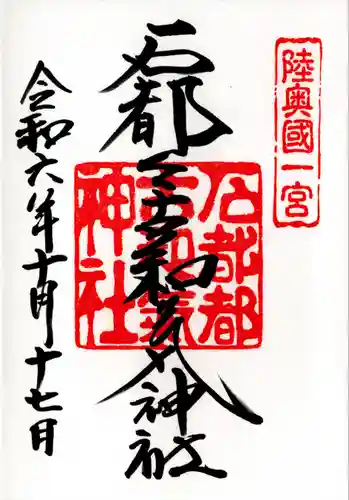 陸奥國一宮
石都々古和氣神社
石都都古和氣神社
令和六年十月十七日